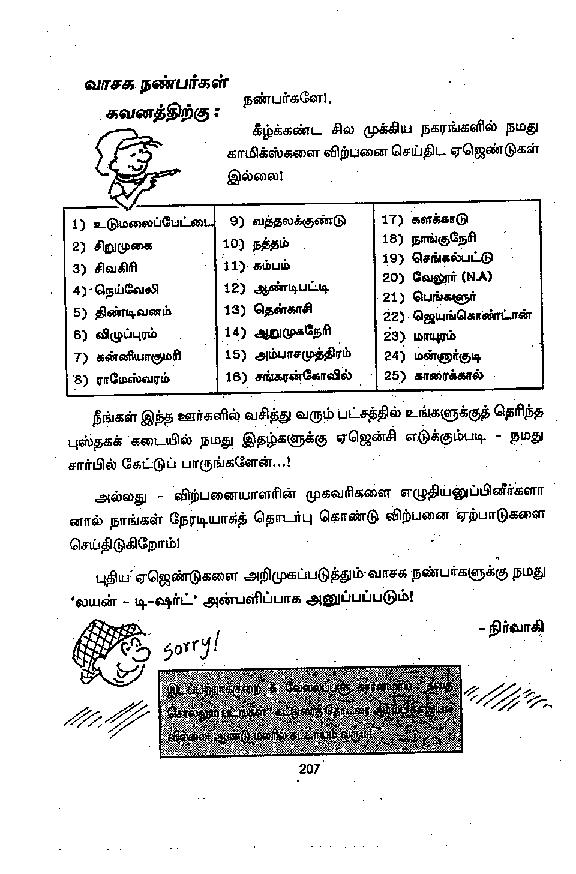 வாசக நண்பர்கள்
கவனத்திற்கு :
நண்பர்களே!,
கீழ்க்கண்ட சில முக்கிய நகரங்களில் நமது
காமிக்ஸ்களை விற்பனை செய்திட ஏஜெண்டுகள்
இல்லை!
1) உடுமலைப்பேட்டை
2) சிறுமுகை
3) சிவகிரி
4) நெய்வேலி
5) திண்டிவனம்
6) விழுப்புரம்
7) கன்னியாகுமரி
8) ராமேஸ்வரம்
9) வத்தலக்குண்டு
10) நத்தம்
11) கம்பம்
12) ஆண்டிபட்டி
13) தென்காசி
14) ஆறுமுகநேரி
15) அம்பாசமுத்திரம்
16) சங்கரன்கோவில்
17) களக்காடு
18) நாங்குநேரி
19) செங்கல்பட்டு
20) வேலூர் (N.A)
21) பெங்களூர்
22) ஜெயங்கொண்டான்
23) மாயுரம்
24) மன்னார்குடி
25) காரைக்கால்
நீங்கள் இந்த ஊர்களில் வசித்து வரும் பட்சத்தில் உங்களுக்குத் தெரிந்த
புஸ்தகக் கடையில் நமது இதழ்களுக்கு ஏஜென்சி எடுக்கும்படி - நமது
சார்பில் கேட்டுப் பாருங்களேன்...!
அல்லது - விற்பனையாளரின் முகவரிகளை எழுதியனுப்பினீர்களா
னால் நாங்கள் நேரடியாகத் தொடர்பு கொண்டு விற்பனை ஏற்பாடுகளை
செய்திடுகிறோம்!
புதிய ஏஜெண்டுகளை அறிமுகப்படுத்தும் வாசக நண்பர்களுக்கு நமது
'லயன் - டி-ஷர்ட்' அன்பளிப்பாக அனுப்பப்படும்!
- நிர்வாகி
Sorry!
207